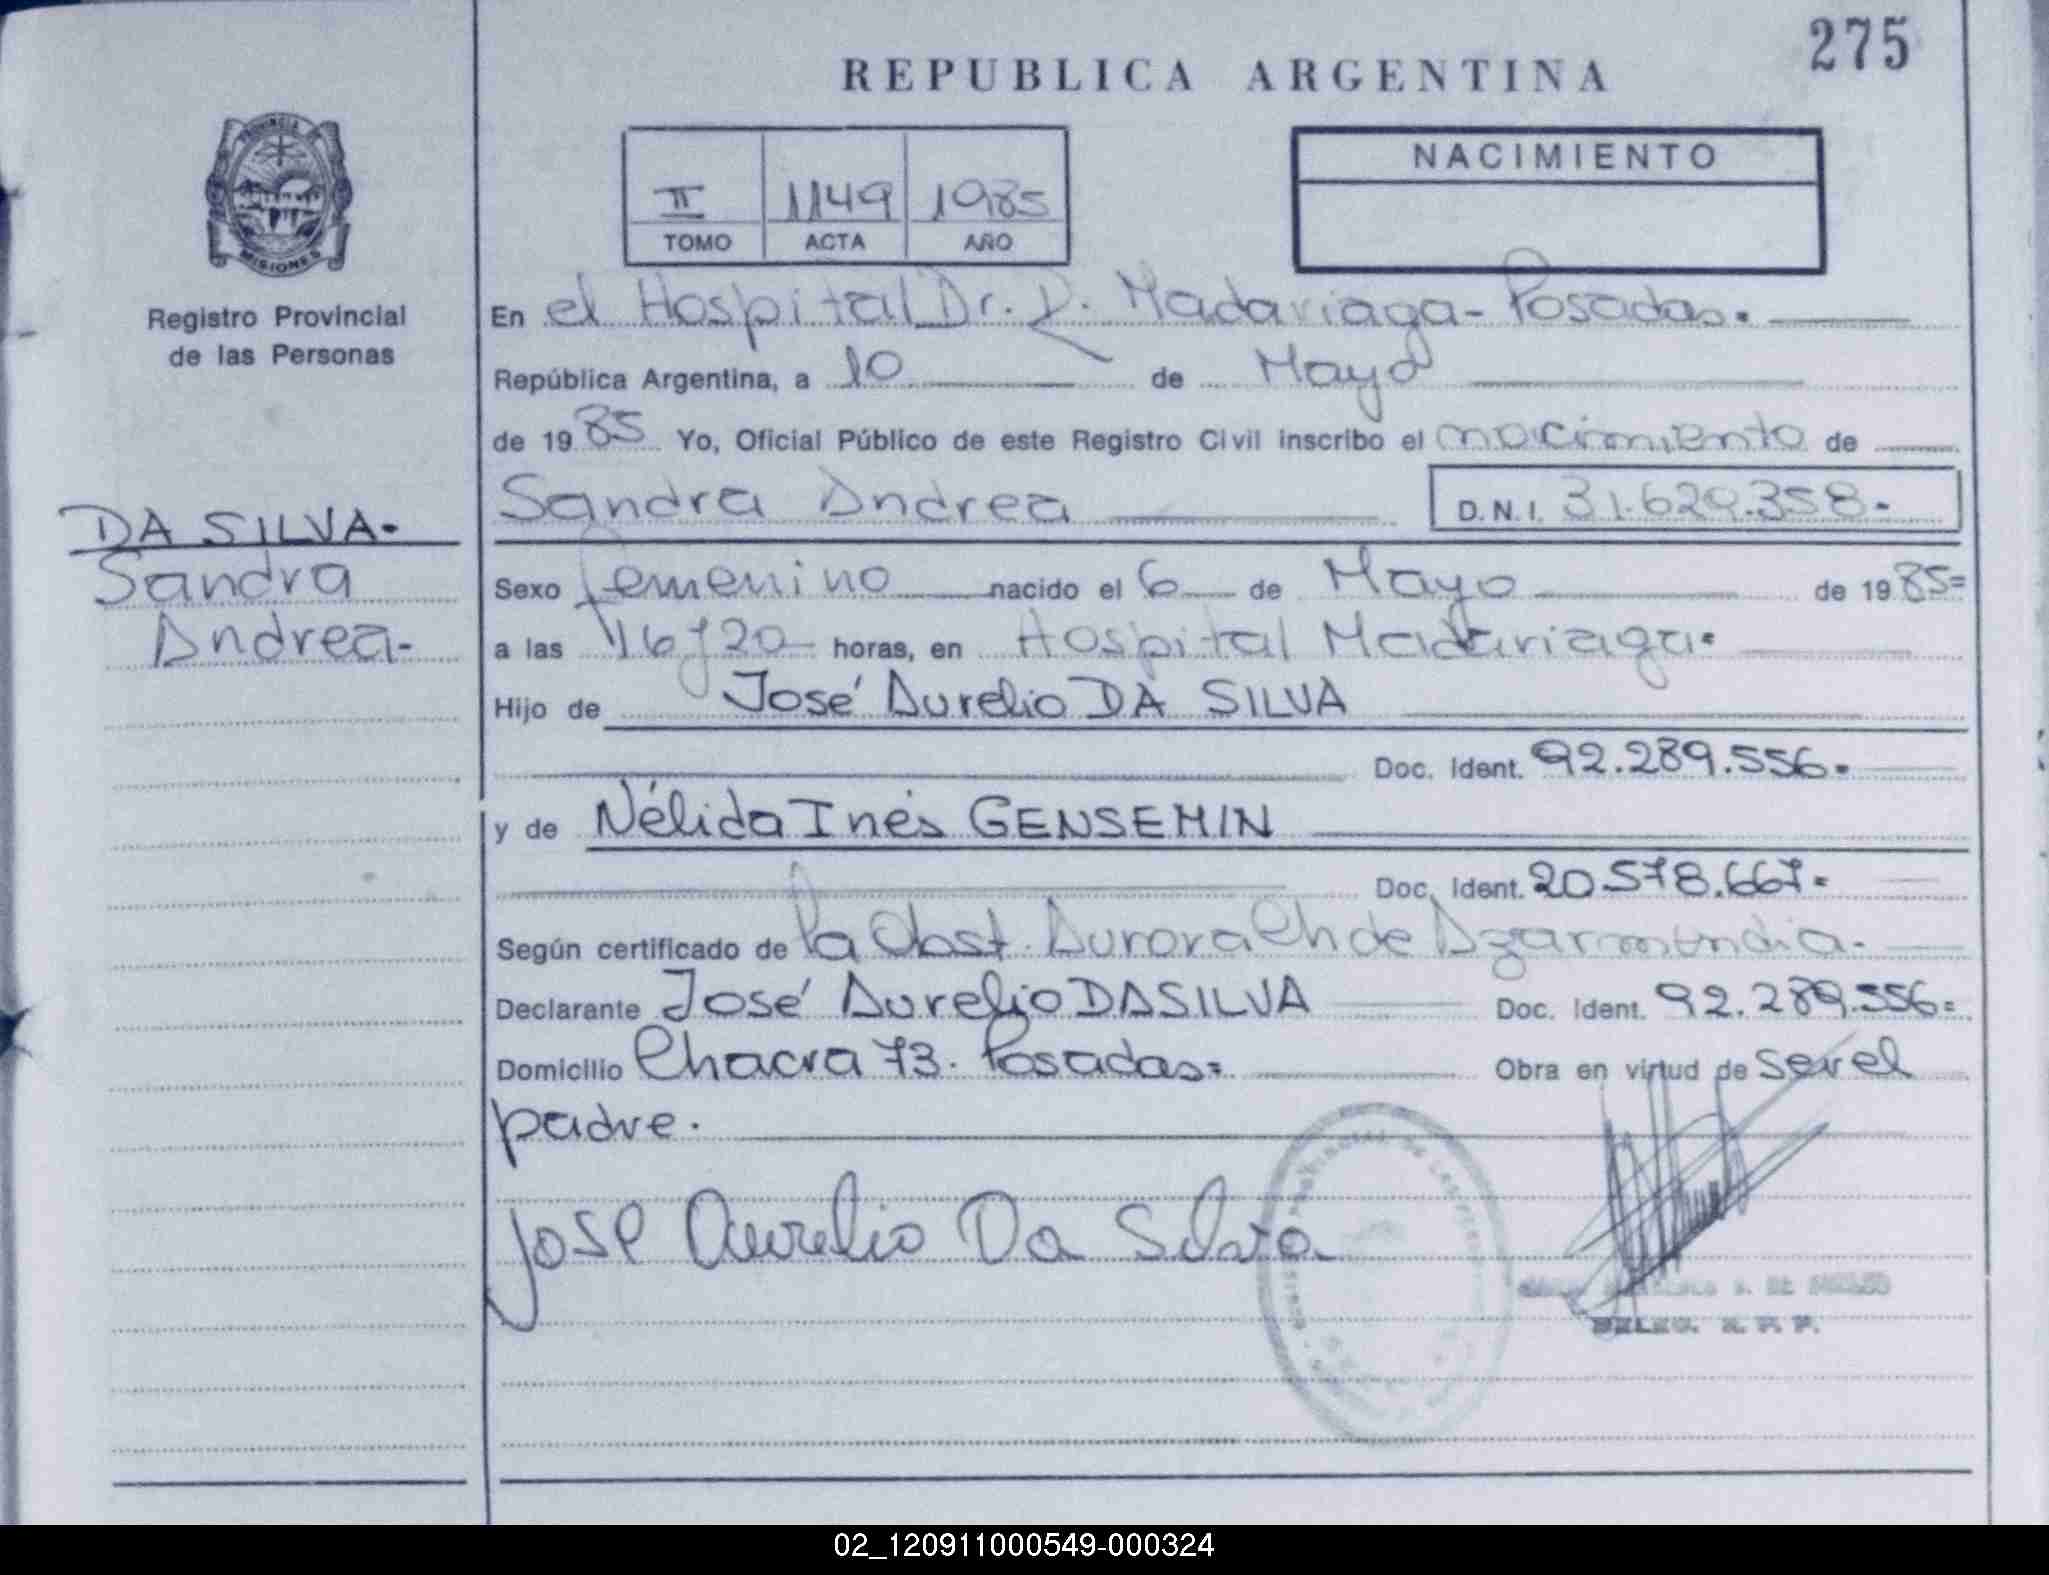 275
REPUBLICA ARGENTINA
PROVINCIA DE
MISIONES
Registro Provincial
de las Personas
II 1149 1985
TOMO ACTA AÑO
NACIMIENTO
En el Hospital Dr. R. Madariaga - Posadas.
República Argentina, a 10 de Mayo
de 1985 Yo, Oficial Público de este Registro Civil inscribo el nacimiento de
Sandra Andrea D.N.I. 31.629.358.-
DA SILVA.
Sandra
Andrea-
Sexo femenino nacido el 6 de Mayo de 1985=
a las 16 y 20 horas, en Hospital Madariaga.
Hijo de José Aurelio DA SILVA
Doc. Ident. 92.289.556.
y de Nélida Inés GENSEMIN
Doc. Ident. 20578.667.
Según certificado de la Obst. Aurora Ch de Azarmendia.
Declarante José Aurelio DASILVA Doc. Ident. 92.289.556=
Domicilio Chacra 73. Posadas= Obra en virtud de ser el
padre.
Jose Aurelio Da Silva
DELEG. R. P. P.
02_120911000549-000324